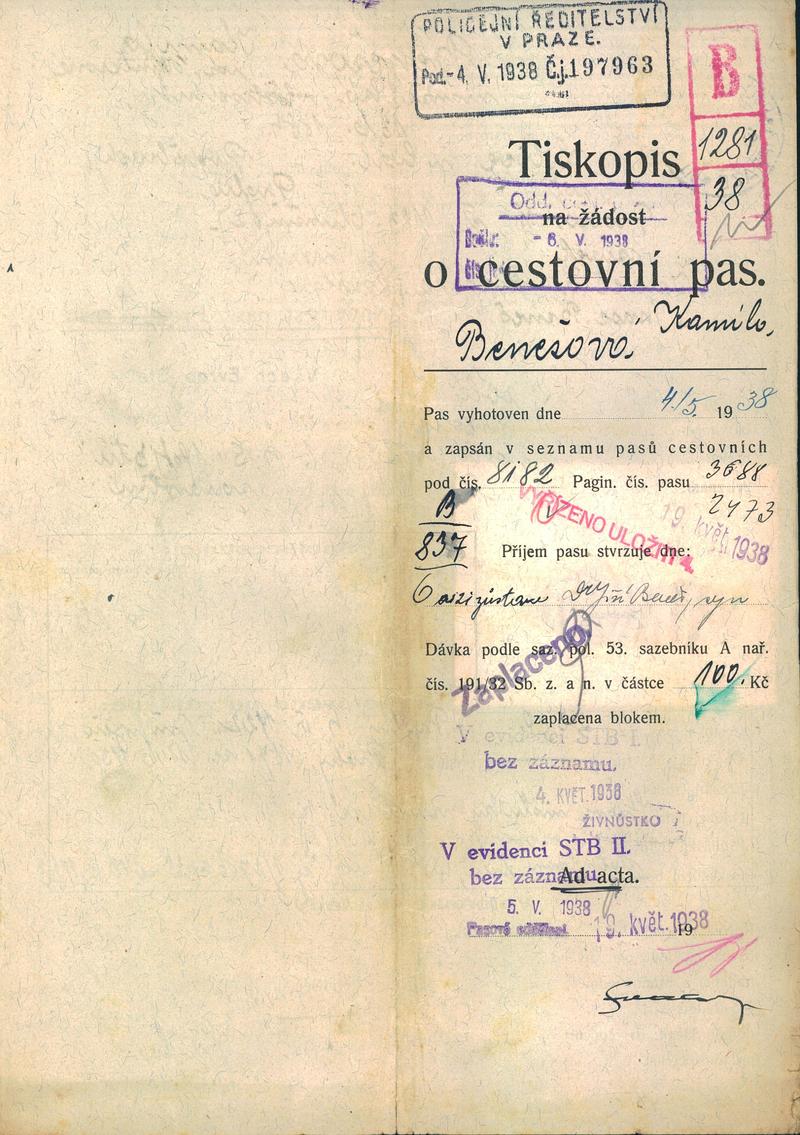 POLICEJNÍ ŘEDITELSTVÍ
V PRAZE.
Pod. -4. V. 1938 Čj. 197963
B
1281
38
Tiskopis
Odd.
na žádost
Došlo: - 6. V. 1938
o cestovní pas.
Benešová Kamila,
Pas vyhotoven dne 4/5. 19 38
a zapsán v seznamu pasů cestovních
pod čís. 8182 Pagin. čís. pasu 3688
B 2473
VYŘÍZENO ULOŽITI
19. květ. 1938
837 Příjem pasu stvrzuje dne:
syn
Dávka podle saz. pol. 53. sazebníku A nař.
Zaplaceno.
čís. 191/32 Sb. z. a n. v částce 100. Kč
zaplacena blokem.
V evidenci STB I.
bez záznamu.
4. KVĚT. 1938
ŽIVNOSTKO
V evidenci STB II.
bez záznamu.
Ad acta.
5. V. 1938
Pasové oddělení
19. květ. 1938
19